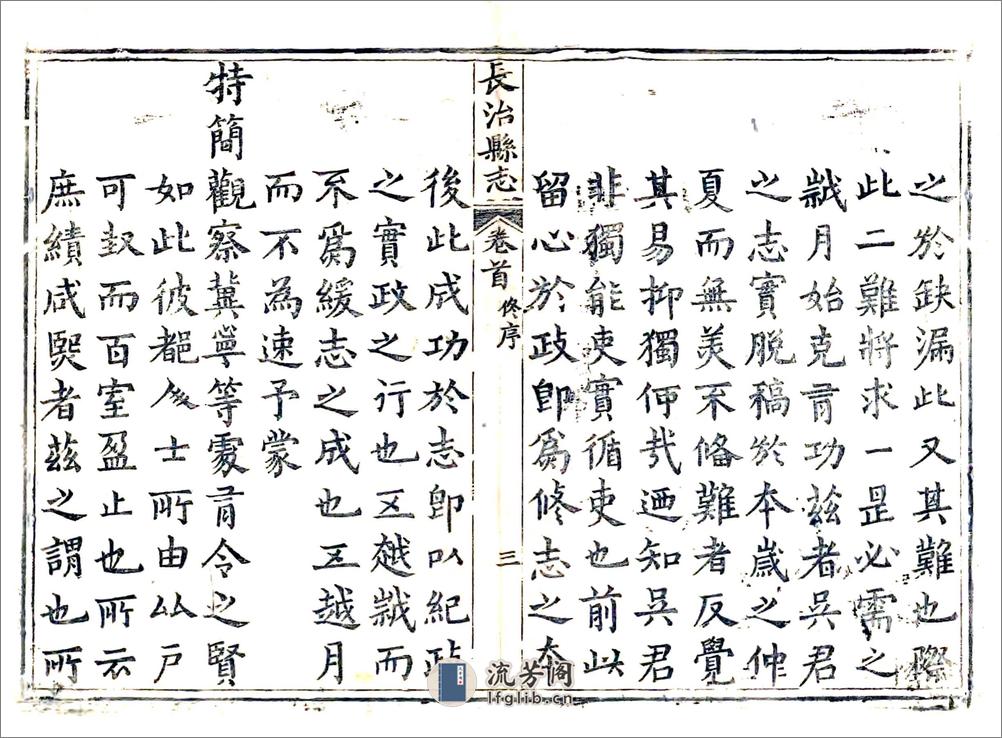 之於缺漏此又其難也際
此二難將求一昰必需之
歲月始克有功茲者吳君
之志實脫稿於本歲之仲
夏而無美不備難者反覺
其易抑獨何哉迺知吳君
非獨能吏實循吏也前此
留心於政即爲修志之本
長治縣志
卷首
修序
三
後此成功於志卽以紀政
之實政之行也五越歲而
不爲緩志之成也五越月
而不為速予蒙
特簡觀察冀寧等處有令之賢
如此彼都人士所由比戶
可封而百室盈止也所云
庶績咸熙者茲之謂也所
流芳阁
lfglib.cn